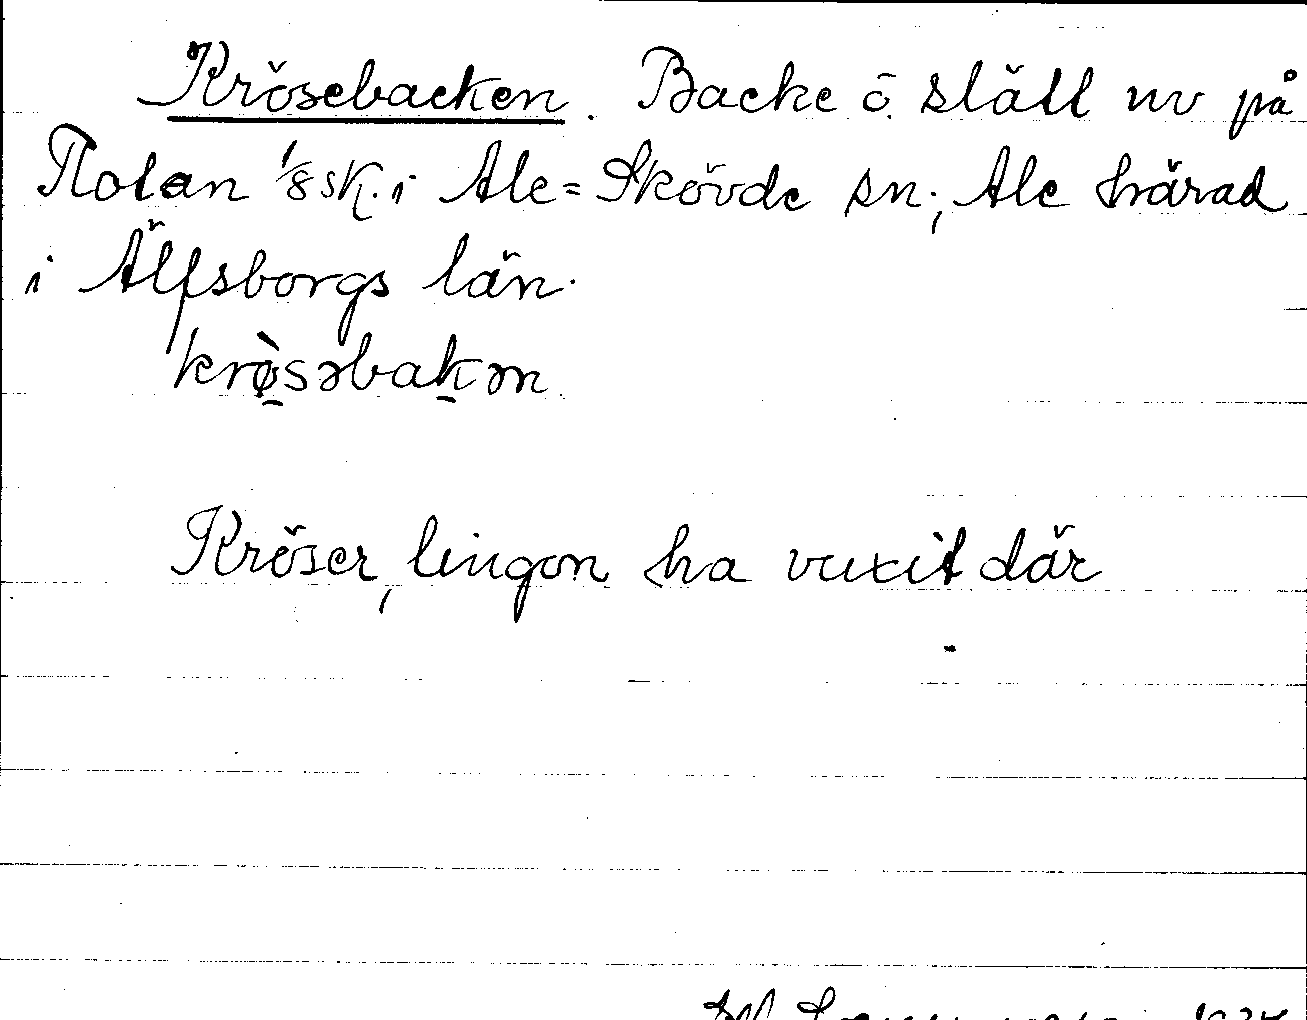 Krösebacken. Backe o. släll nv på
Nolan 1/8 sk. i Ale=Skövde sn., Ale härad
i Älfsborgs län.
krø̀səbakən
Kröser, lingon ha vuxit där